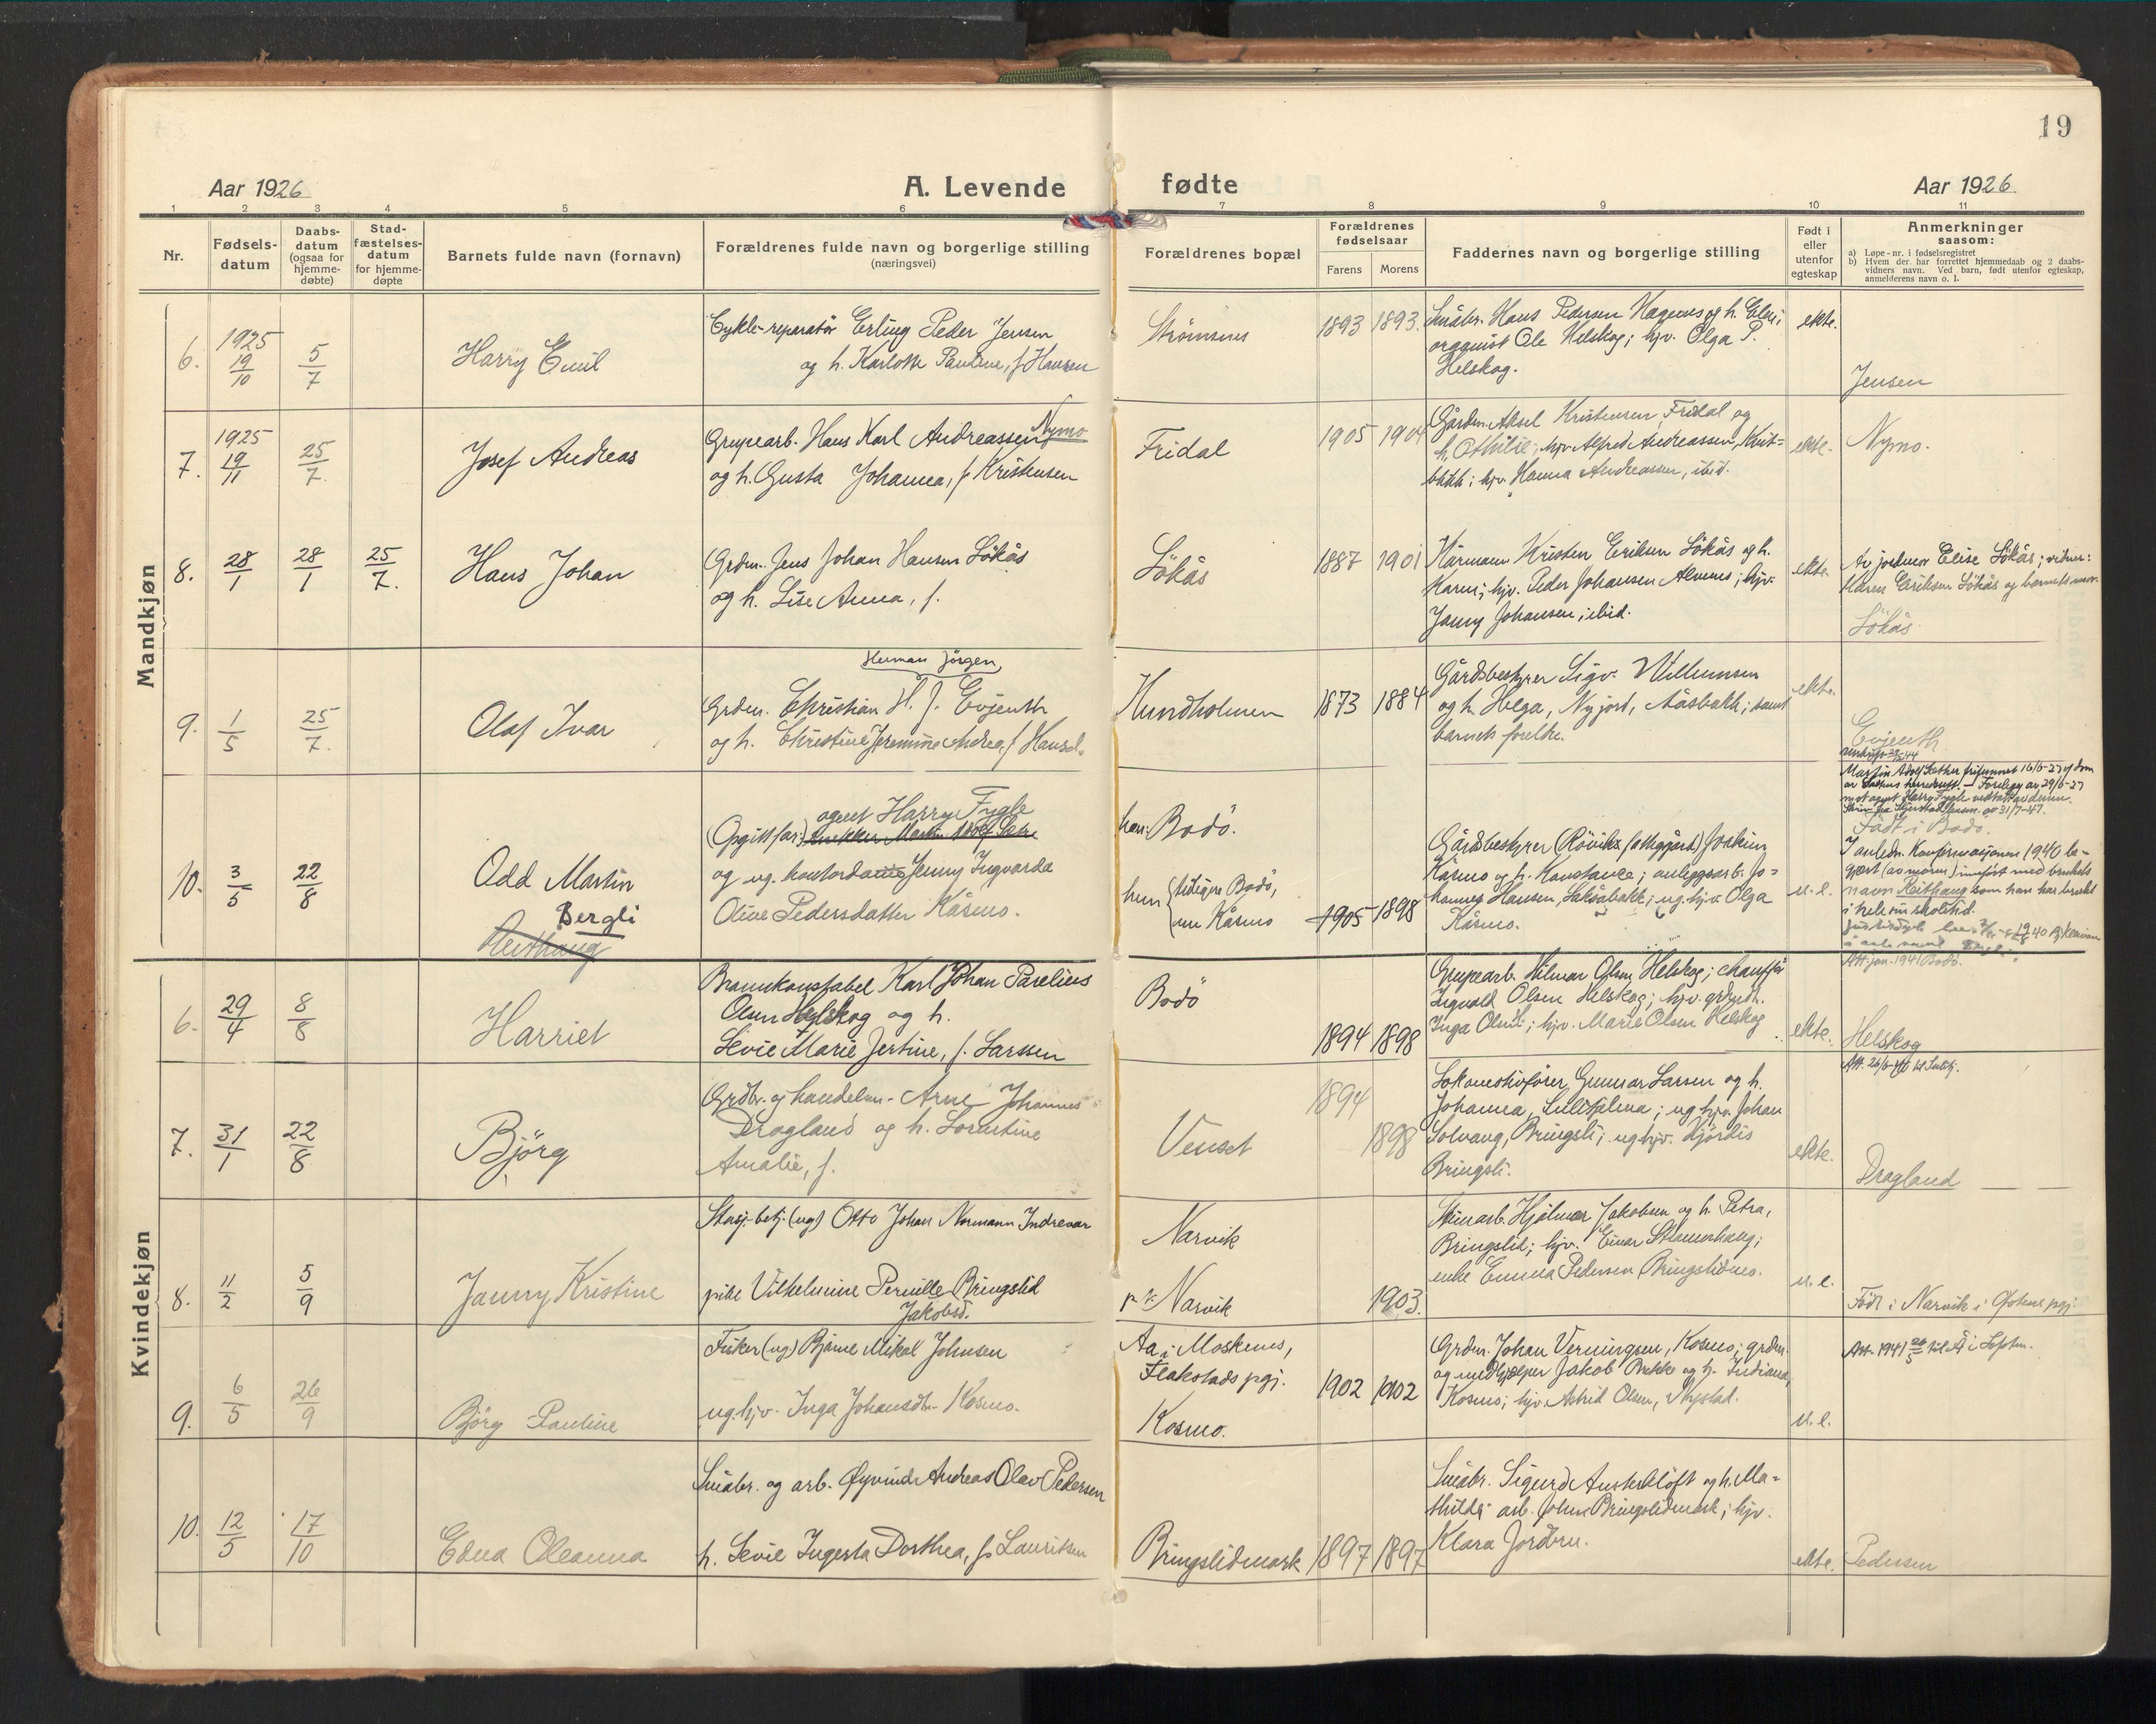 19
Aar 1926
A. Levende
fødte
Aar 1926
1 2 3 4 5 6 7 8 9 10 11
Nr.
Fødsels-
datum
Daabs-
datum
(ogsaa for
hjemme-
døbte)
Stad-
fæstelses-
datum
for hjemme-
døpte
Barnets fulde navn (fornavn)
Forældrenes fulde navn og borgerlige stilling
(næringsvei)
Forældrenes bopæl
Forældrenes
fødselsaar
Farens
Morens
Faddernes navn og borgerlige stilling
Født i
eller
utenfor
egteskap
Anmerkninger
saasom:
a) Løpe-nr. i fødselsregistret
b) Hvem der har forrettet hjemmedaab og 2 daabs-
vidners navn. Ved barn, født utenfor egteskap,
anmelderens navn o. l.
Mandkjøn
6.
1925
19/10
5/7
Harry Emil
Cykle-reparatør Erling Peder Jensen
og h. Karlotte Pauline, f. Hansen
Strømsnes
1893
1893.
Småbr. Hans Pedersen Hagenes og h. Elen;
organist Ole Helskog; hjv. Olga P.
Helskog.
ekte.
Jensen
7.
1925
19/11
25/7.
Josef Andreas
Grupearb. Hans Karl Andreassen Nymo
og h. Gusta Johanna, f. Kristensen
Fridal
1905
1904
Gårdm. Aksel Kristensen, Fridal og
h. Othilie; hjv. Alfred Andreassen, Kvit-
blikk; hjv. Hanna Andreassen, ibid.
ekte.
Nymo.
8.
28/1
28/1
25/7.
Hans Johan
Grdm. Jens Johan Hansen Løkås
og h. Lise Anna, f.
Løkås
1887
1901
Kårmann Kristen Eriksen Løkås og h.
Karen; hjv. Peder Johansen Alvenes; hjv.
Janny Johansen, ibid.
ekte.
Av jordmor Elise Løkås; vidner:
Karen Eriksen Løkås og barnets mor.
Løkås.
9.
1/5
25/7.
Olaf Ivar
Herman Jørgen
Grdm. Christian H. J. Evjenth
og h. Christine Jeremine Andrea, f. Hansd.
Hundholmen
1873
1884
Gårdsbestyrer Sigv. Willumsen
og h. Helga, Nyjord, Åsbakk; samt
barnets foreldre.
ekte.
Evjenth
10.
3/5
22/8
Odd Martin
Bergli
Reithaug
agent Harry Fygle
(Opgitt far:) Snekker Martin Adolf Sætre
og ug. kontordame Jenny Ingvarda
Oline Pedersdatter Kåsmo.
han: Bodø.
hun { tidligere Bodø,
nu Kåsmo
1905
1898
Gårdsbestyrer (Røvik fattiggård) Joakim
Kåsmo og h. Konstance; anleggsarb. Jo-
hannes Hansen, Laksåbakk; ug. hjv. Olga
Kåsmo.
u. e.
Martin Adolf Sæther frifunnet 16/6-27 ved dom
av Saltens herredsrett. – Forelegg av 29/6-27
mot agent Harry Fygle vedtatt av denne.
Født i Bodø.
I anledn. Konfirmasjonen 1940 be-
gjært (av moren) innført med bruksts
navn Reithaug som han har brukt
i hele sin skoletid.
Att. jan. 1941 Bodø.
Kvindekjøn
6.
29/4
8/8
Harriet
Brannkonstabel Karl Johan Parelius
Olsen Helskog og h.
Sevie Marie Jertine, f. Larssen
Bodø
1894
1898
Grupearb. Hilmar Olsen Helskog; chauffør
Ingvald Olsen Helskog; hjv. grdmdtr.
Inga Olsen H; hjv. Marie Olsen Helskog
ekte.
Helskog
7.
31/1
22/8
Bjørg
Grdbr. og handelsm. Arne Johannes
Dragland og h. Lorentine
Amalie, f.
Venset
1894
1898
Lokomotivfører Gunnar Larsen og h.
Johanna, Sulitjelma; ug. hjv. Johan
Solvang, Bringsli; ug. hjv. Hjørdis
Bringsli.
ekte.
Att. 26/6-40 til Sulitj.
Dragland
8.
11/2
5/9
Janny Kristine
Stasj.-betj. (ug) Otto Johan Normann Indrevær
pike Vilhelmine Pernille Bringslid
Jakobsd.
Narvik
p. t. Narvik
1903.
Stenarb. Hjalmar Jakobsen og h. Petra,
Bringslid; hjv. Einar Storhaug;
enke Emma Pedersen Bringslidmo.
u. e.
Født i Narvik i Ofotens pgj.
9.
6/5
26/9
Bjørg Pauline
Fisker (ug) Bjarne Mikal Johnsen
ug. hjv. Inga Johansdtr. Kosmo.
Aa i Moskenes,
Flakstads pgj.
Kosmo.
1902
1902
Grdm. Johan Verningsen, Kosmo; grdm.
og medhjelper Jakob Brekke og h. Indiana,
Kosmo; hjv. Astrid Olsen, Nystad.
u. e.
Att. 1941 26/5 til Å i Lofoten.
10.
12/5
17/10
Edna Oleanna
Småbr. og arb. Øyvind Andreas Olav Pedersen
h. Sevie Ingerta Dorthea, f. Lauritsen
Bringslidmark
1897
1897
Småbr. Sigurd Austerkløft og h. Ma-
thilde; arb. Johan Bringslidmark; hjv.
Klara Jordbru.
ekte.
Pedersen